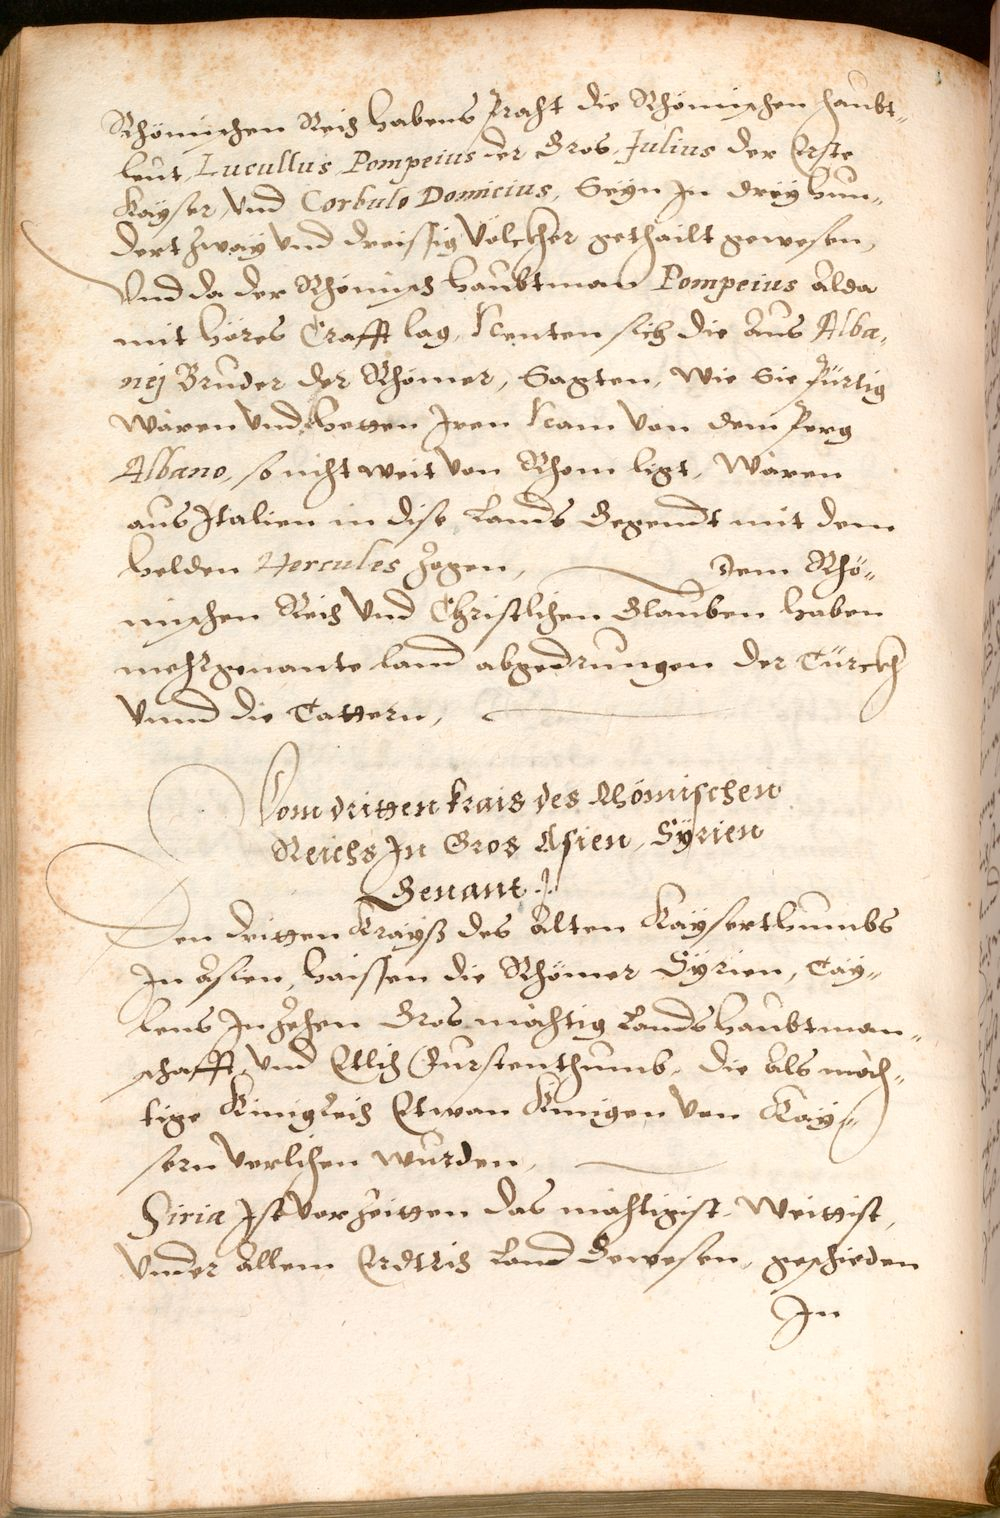 Rhömischen Reich habens pracht die Rhömischen haubt-
leut, Lucullus, Pompeius der Gros, Julius der Erste
Kayser, vnd Corbulo Domicius, Seyn In drey hun-
dert zway vnd dreissig Völckher gethailt gewesen,
Vnd da der Rhömisch haubtman Pompeius alda
mit höres Crafft lag, Nenten sich die aus Alba-
nej Bruder der Rhömer, Sagten, wie Sie pürtig
wären vnd hetten Iren Nam von dem perg
Albano, so nicht weit von Rhom ligt, Wären
aus Italien in dise Lands Gegendt mit dem
helden Hercules zogen, Dem Rhö-
mischen Reich vnd Christlichen Glauben haben
mehrgenante Land abgedrungen der Türckh
Vnnd die Tattern,
Vom dritten krais des Rhömischen
Reichs In Gros Asien, Syrien
Genant.
Den dritten Krayß des Alten Kayserthumbs
In Asien, haissen die Rhömer Syrien, Tay-
lens In zehen Gros mächtig Landshaubtman-
schafft, vnd Etlich Furstenthumb, die als mäch-
tige Kinigreich Etwan Kinigen von Kay-
sern Verlichen wurden,
Siria Ist vor zeitten das mächtigist, Weittist,
Vnder Allem Erdtrich Land Gewesen, geschieden
In